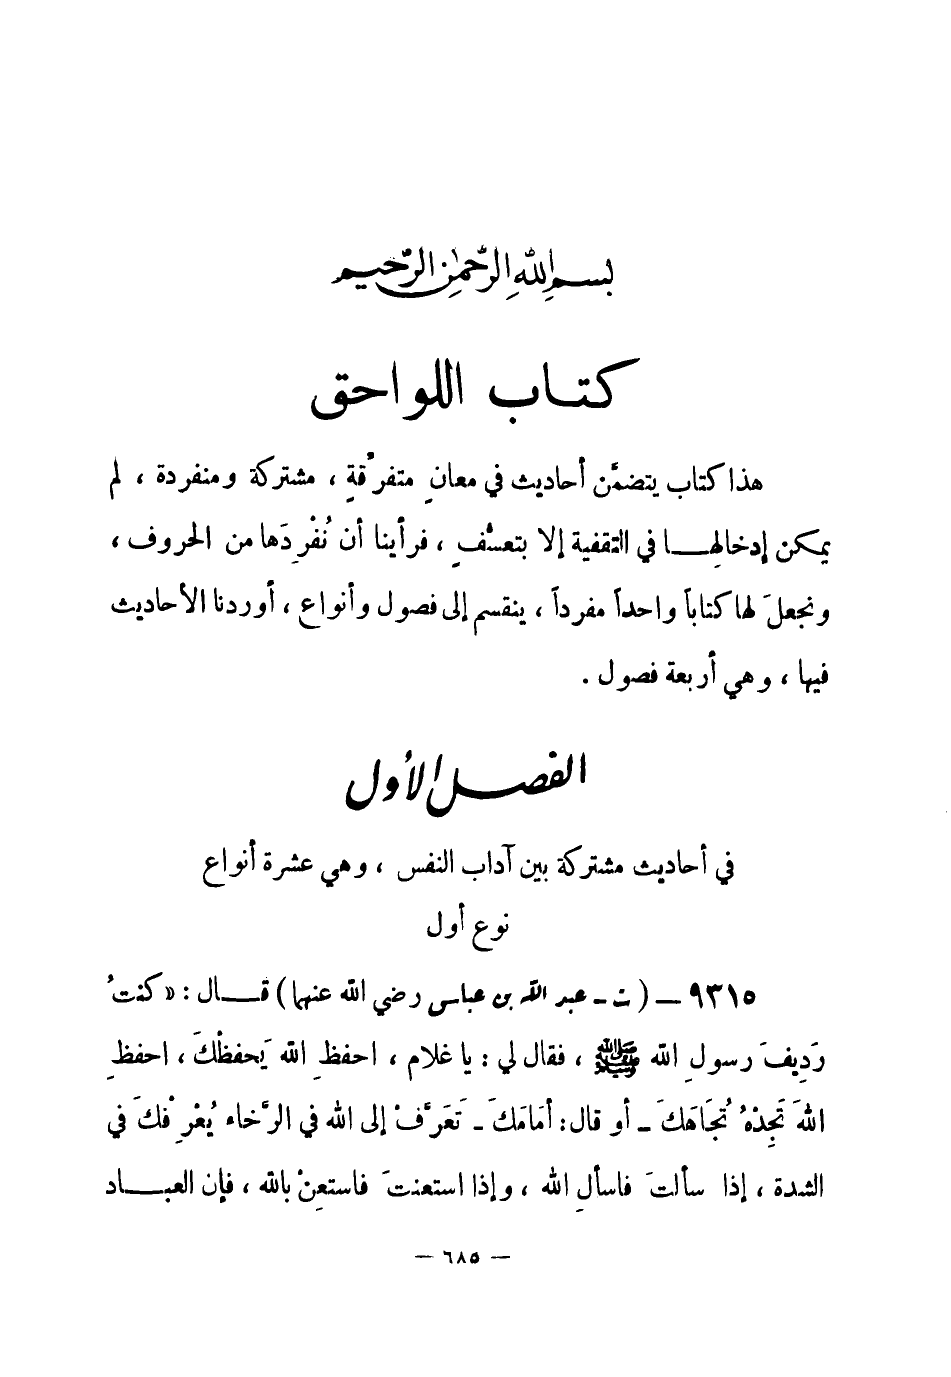 بسم الله الرحمن الرحيم
كتاب اللواحق
هذا كتاب يتضمَّن أحاديث في معانٍ متفرِّقةٍ ، مشتركة ومنفردة ، لم
يمكن إدخالها في التقفية إلا بتعسُّفٍ ، فرأينا أن نُفْرِدَها من الحروف ،
ونجعلَ لها كتاباً واحداً مفرداً ، ينقسم إلى فصول وأنواع ، أوردنا الأحاديث
فيها ، وهي أربعة فصول .
الفصل الأول
في أحاديث مشتركة بين آداب النفس ، وهي عشرة أنواع
نوع أول
٩٣١٥ – ( ت - عبد الله بن عباس رضي الله عنهما ) قال : «كنتُ
رَدِيفَ رسولِ الله ﷺ ، فقال لي : يا غلام ، احفظِ الله يَحفظْكَ ، احفظِ
اللهَ تَجِدْهُ تُجَاهَكَ - أو قال : أمَامَكَ - تَعَرَّفْ إلى الله في الرَّخاء يُعْرِفْكَ في
الشدة ، إذا سألتَ فاسألِ الله ، وإذا استعنتَ فاستعِنْ بالله ، فإن العباد
– ٦٨٥ –